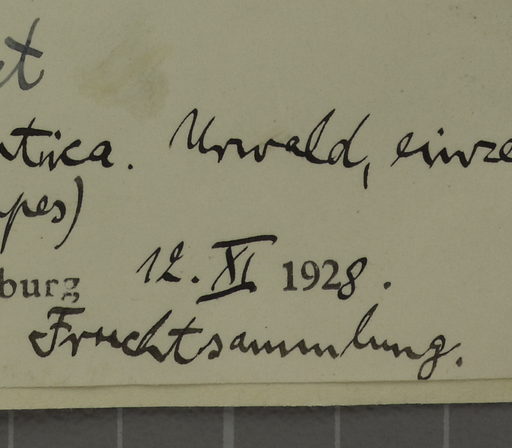 et
ntica. Urwald, einze
pes)
burg 12. XI 1928.
Fruchtsammlung.